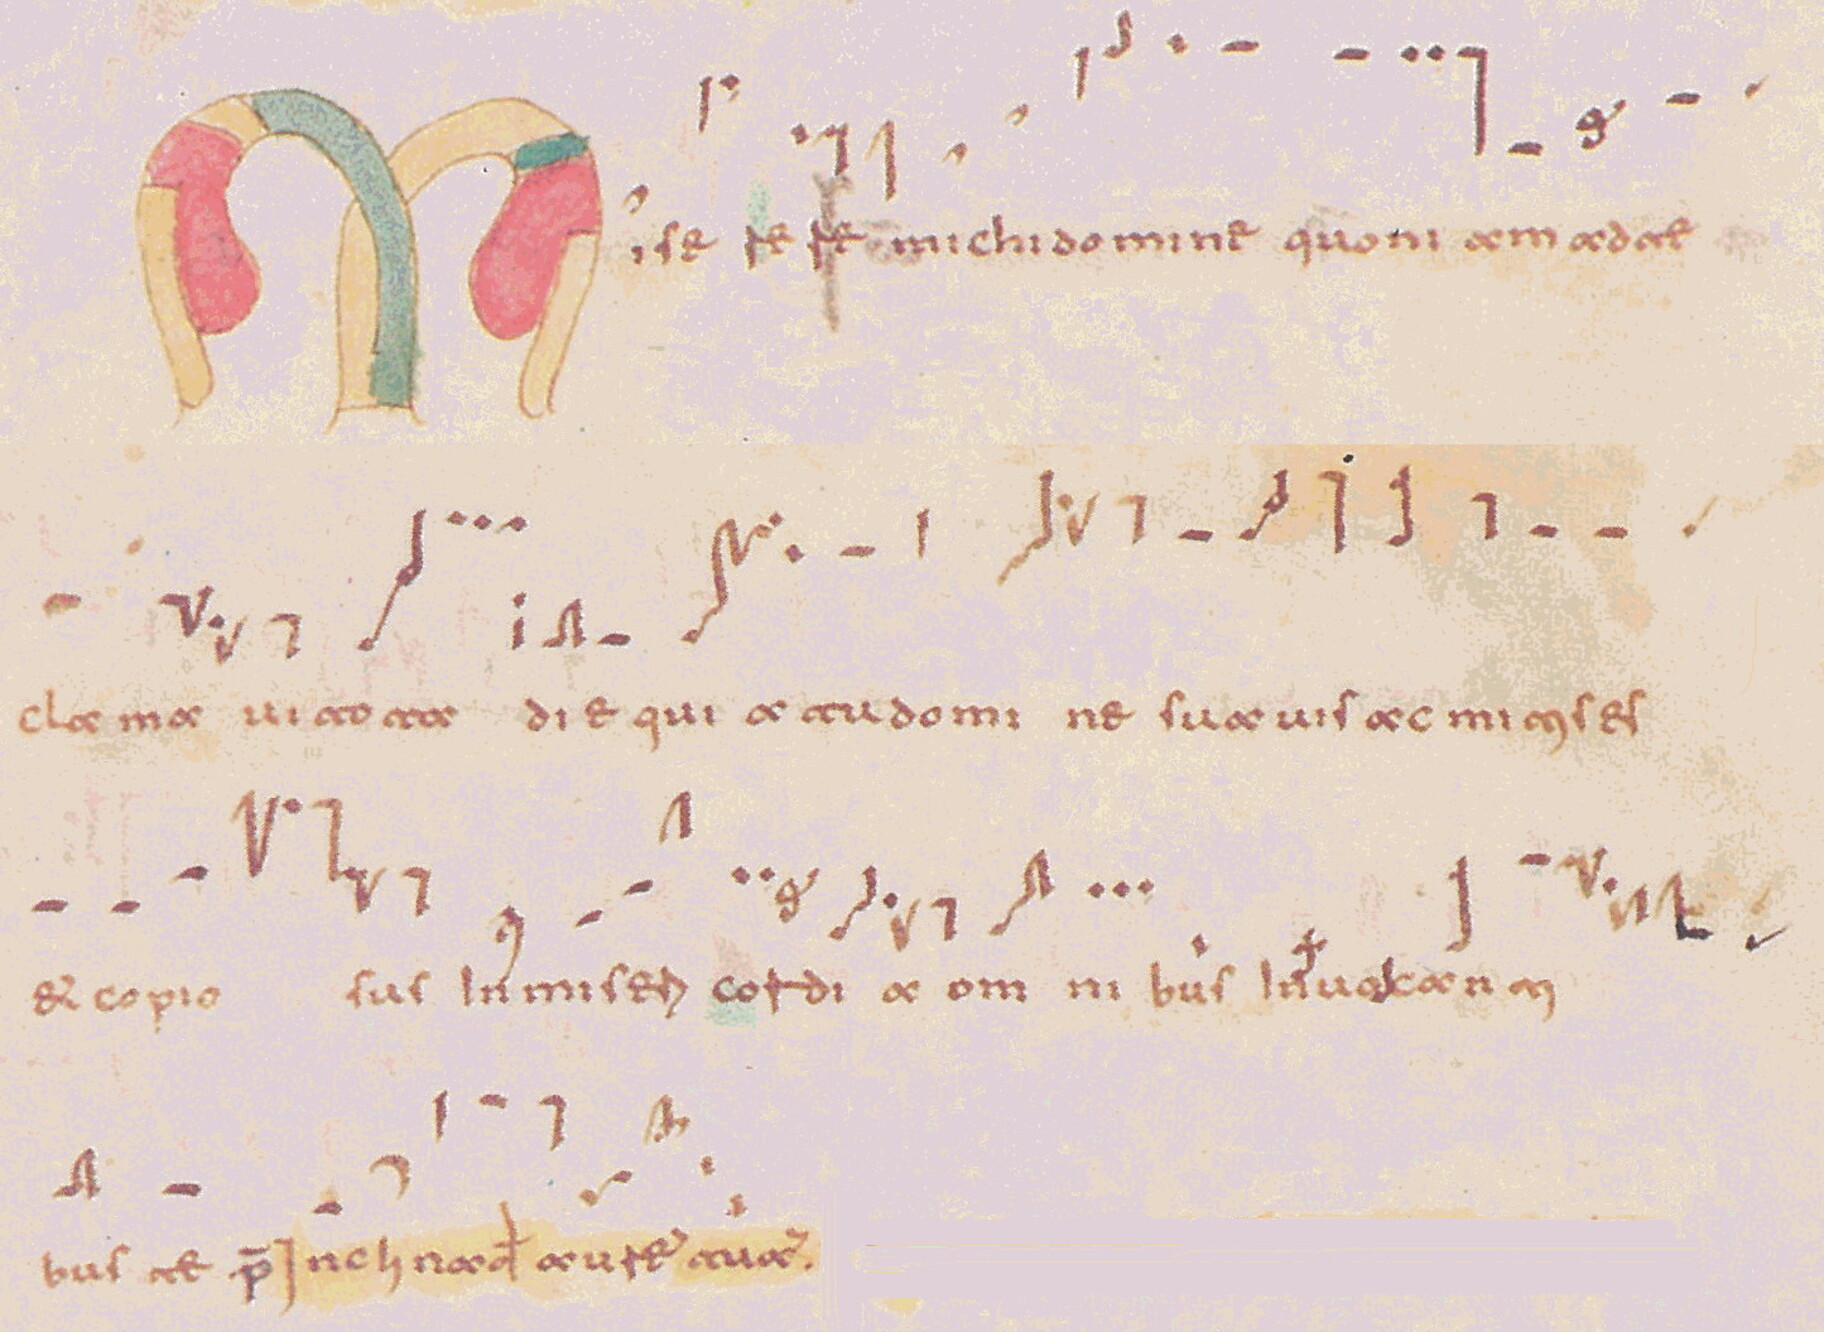 Mise re re michi domine quoni am ad te
cla ma ui tota die qui a tu domi ne suauis ac mitis es
& copio sus In miseri cordi a om ni bus Inuocan ti
bus te p̄ Inclina đ aurē tuā.